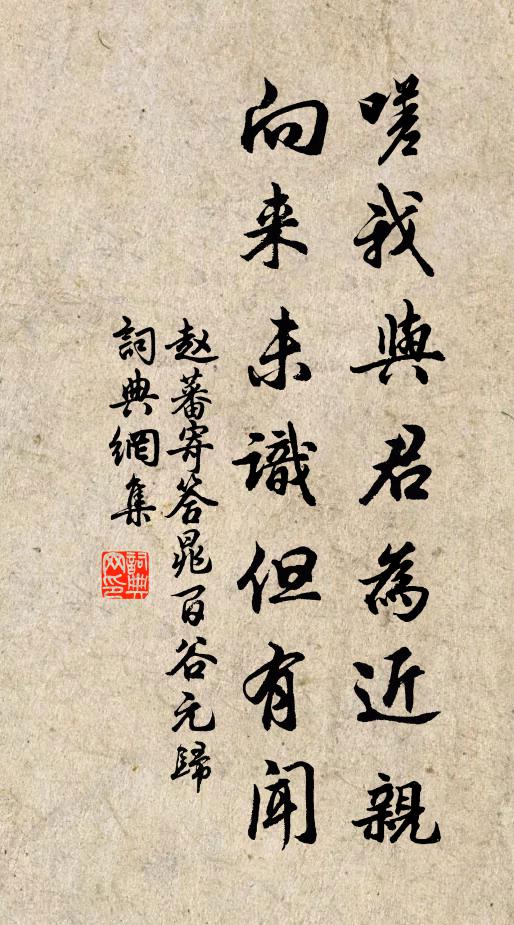 嗟我與君為近親
向来未識但有聞
赵蕃寄答晁百谷元歸
詞典網集
詞典网印